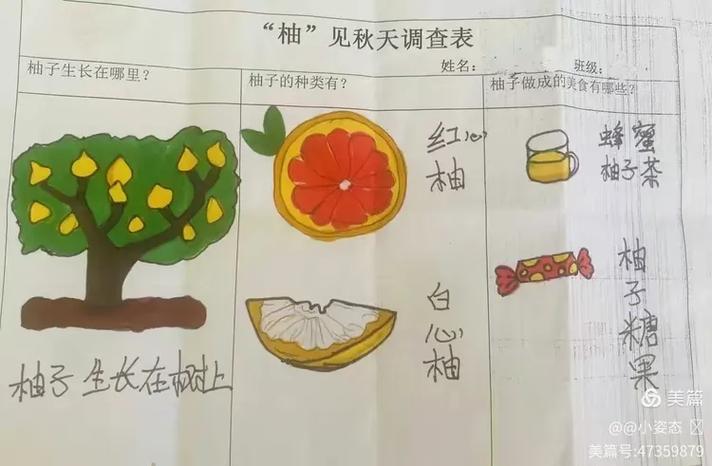 “柚”见秋天调查表
姓名： 班级：
柚子生长在哪里？
柚子的种类有？
柚子做成的美食有哪些？
柚子生长在树上
红心
柚
白
心
柚
蜂蜜
柚子茶
柚
子
糖
果
美篇
@@小姿态
美篇号:47359879